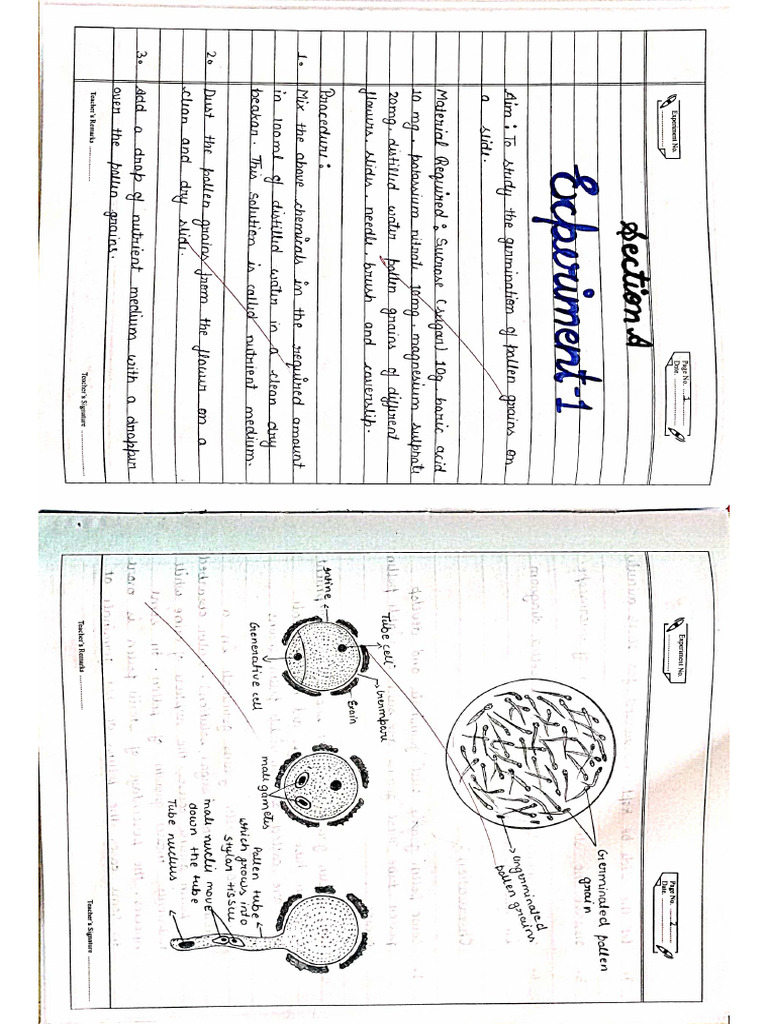 Experiment No.
Page No. 1
Date.
Section A
Experiment-1
Aim: To study the germination of pollen grains on
a slide.
Material Required: Sucrose (sugar) 10g, boric acid
10 mg, potassium nitrate 30mg, magnesium sulphate
20mg, distilled water pollen grains of different
flowers, slides, needle, brush and coverslip.
Procedure:
1. Mix the above chemicals in the required amount
in 100ml of distilled water in a clean dry
beaker. This solution is called nutrient medium.
2. Dust the pollen grains from the flower on a
clean and dry slide.
3. Add a drop of nutrient medium with a dropper
over the pollen grains.
Teacher's Remarks
Teacher's Signature
Experiment No.
Page No. 2
Date.
Germinated pollen
grain
ungerminated
pollen grains
Tube cell
Germpore
Exain
intine
Generative cell
male gametes
Pollen tube
which grows into
stylar tissue
male nuclei move
down the tube
Tube nucleus
Teacher's Remarks
Teacher's Signature